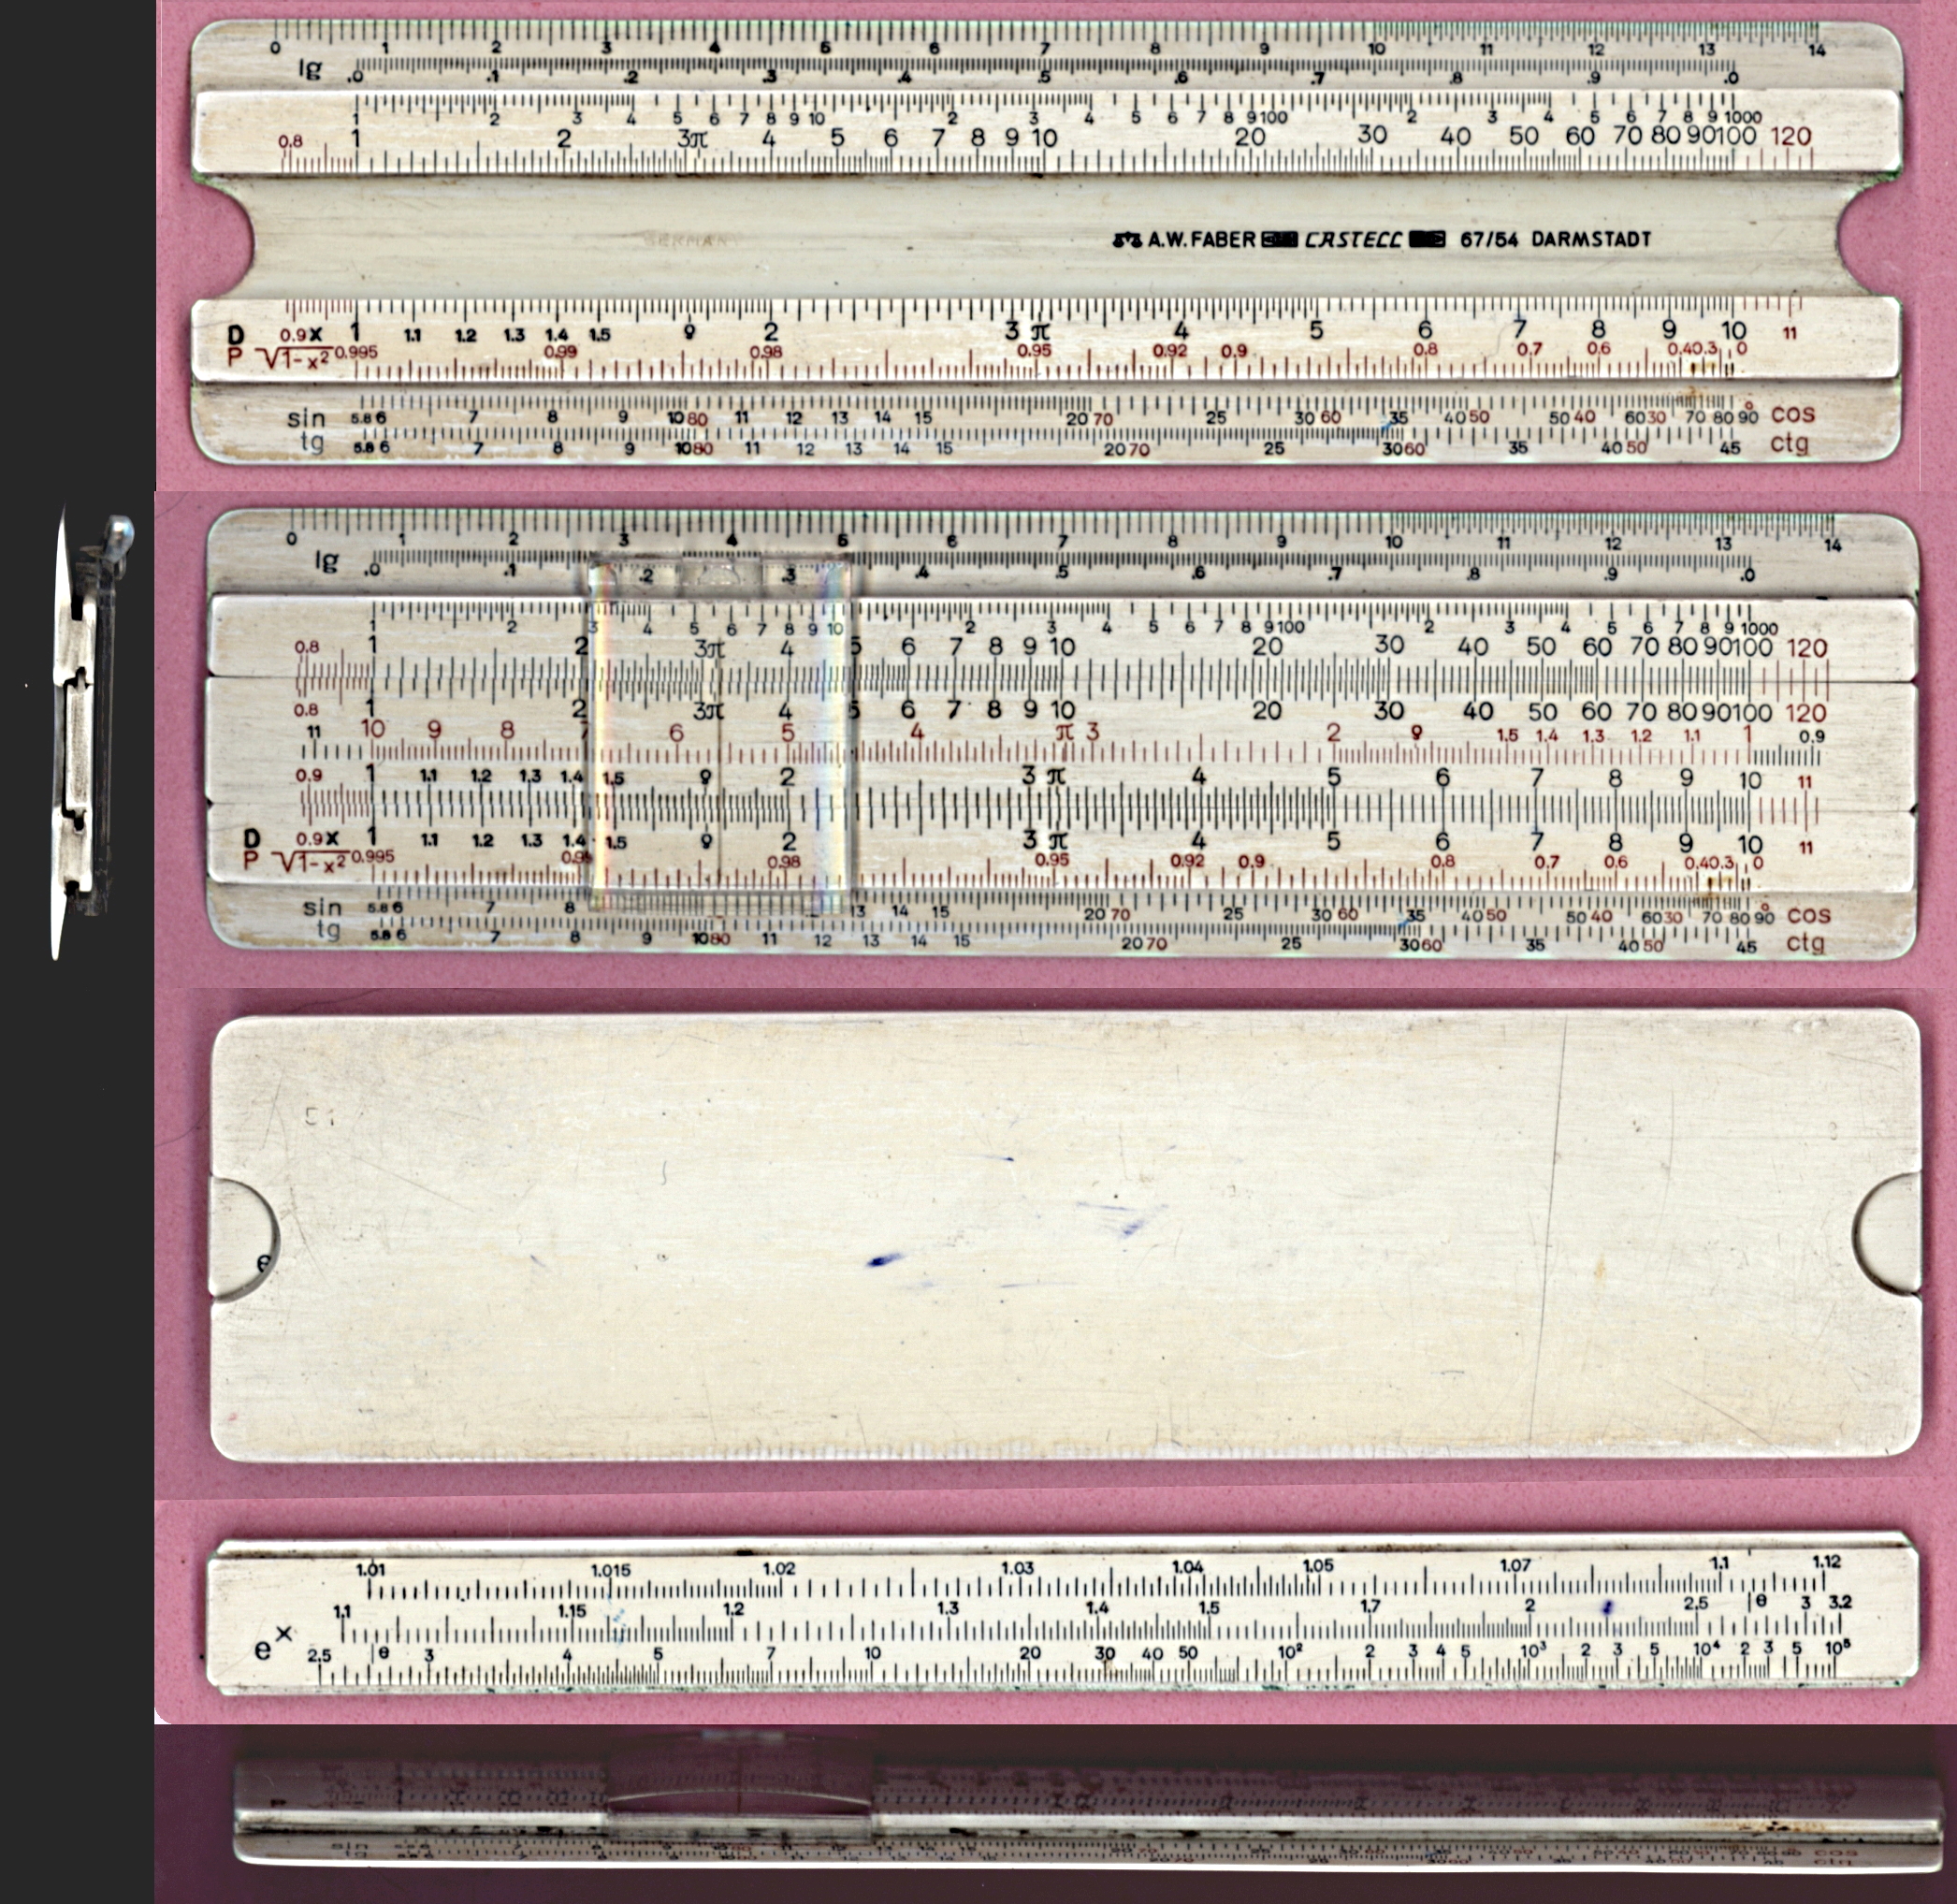 0 1 2 3 4 5 6 7 8 9 10 11 12 13 14
lg .0 .1 .2 .3 .4 .5 .6 .7 .8 .9 .0
1 2 3 4 5 6 7 8 9 10 2 3 4 5 6 7 8 9 100 2 3 4 5 6 7 8 9 1000
0.8 1 2 3 π 4 5 6 7 8 9 10 20 30 40 50 60 70 80 90 100 120
GERMANY
A.W. FABER CASTELL 67/54 DARMSTADT
D 0.9 X 1 1.1 1.2 1.3 1.4 1.5 2 3 π 4 5 6 7 8 9 10 11
P √1-x² 0.995 0.99 0.98 0.95 0.92 0.9 0.8 0.7 0.6 0.4 0.3 0
sin 5.8 6 7 8 9 10 80 11 12 13 14 15 20 70 25 30 60 35 40 50 50 40 60 30 70 80 90° cos
tg 5.8 6 7 8 9 10 80 11 12 13 14 15 20 70 25 30 60 35 40 50 45 ctg
0 1 2 3 4 5 6 7 8 9 10 11 12 13 14
lg .0 .1 .2 .3 .4 .5 .6 .7 .8 .9 .0
1 2 3 4 5 6 7 8 9 10 2 3 4 5 6 7 8 9 100 2 3 4 5 6 7 8 9 1000
0.8 1 2 3 π 4 5 6 7 8 9 10 20 30 40 50 60 70 80 90 100 120
0.8 1 2 3 π 4 5 6 7 8 9 10 20 30 40 50 60 70 80 90 100 120
11 10 9 8 7 6 5 4 π 3 2 1.5 1.4 1.3 1.2 1.1 1 0.9
0.9 1 1.1 1.2 1.3 1.4 1.5 2 3 π 4 5 6 7 8 9 10 11
D 0.9 X 1 1.1 1.2 1.3 1.4 1.5 2 3 π 4 5 6 7 8 9 10 11
P √1-x² 0.995 0.99 0.98 0.95 0.92 0.9 0.8 0.7 0.6 0.4 0.3 0
sin 5.8 6 7 8 13 14 15 20 70 25 30 60 35 40 50 50 40 60 30 70 80 90° cos
tg 5.8 6 7 8 9 10 80 11 12 13 14 15 20 70 25 30 60 35 40 50 45 ctg
e
1.01 1.015 1.02 1.03 1.04 1.05 1.07 1.1 1.12
1.1 1.15 1.2 1.3 1.4 1.5 1.7 2 2.5 e 3 3.2
eˣ 2.5 e 3 4 5 7 10 20 30 40 50 10² 2 3 4 5 10³ 2 3 5 10⁴ 2 3 5 10⁵